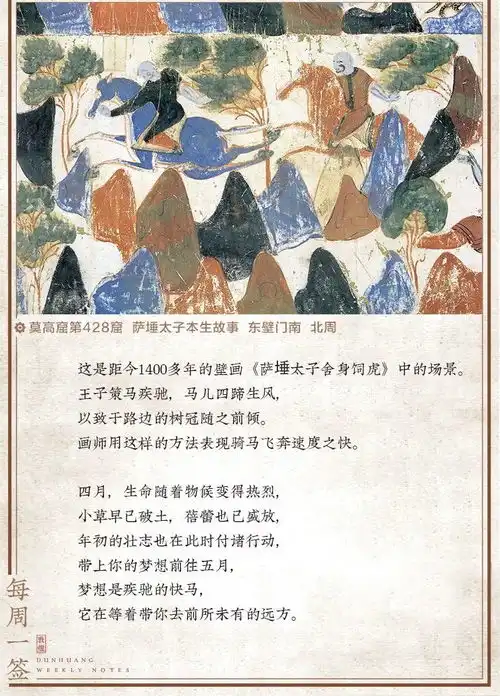 莫高窟第428窟 萨埵太子本生故事 东壁门南 北周
这是距今1400多年的壁画《萨埵太子舍身饲虎》中的场景。
王子策马疾驰，马儿四蹄生风，
以致于路边的树冠随之前倾。
画师用这样的方法表现骑马飞奔速度之快。
四月，生命随着物候变得热烈，
小草早已破土，蓓蕾也已盛放，
年初的壮志也在此时付诸行动，
带上你的梦想前往五月，
梦想是疾驰的快马，
它在等着带你去前所未有的远方。
每周一签
DUNHUANG
WEEKLY NOTES